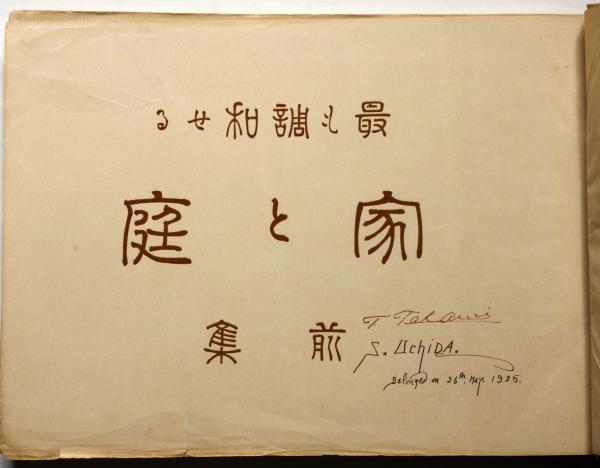 最も調和せる
家と庭
前集
T. Takami
S. UchiDA.
Belonged on 26th. May. 1925.